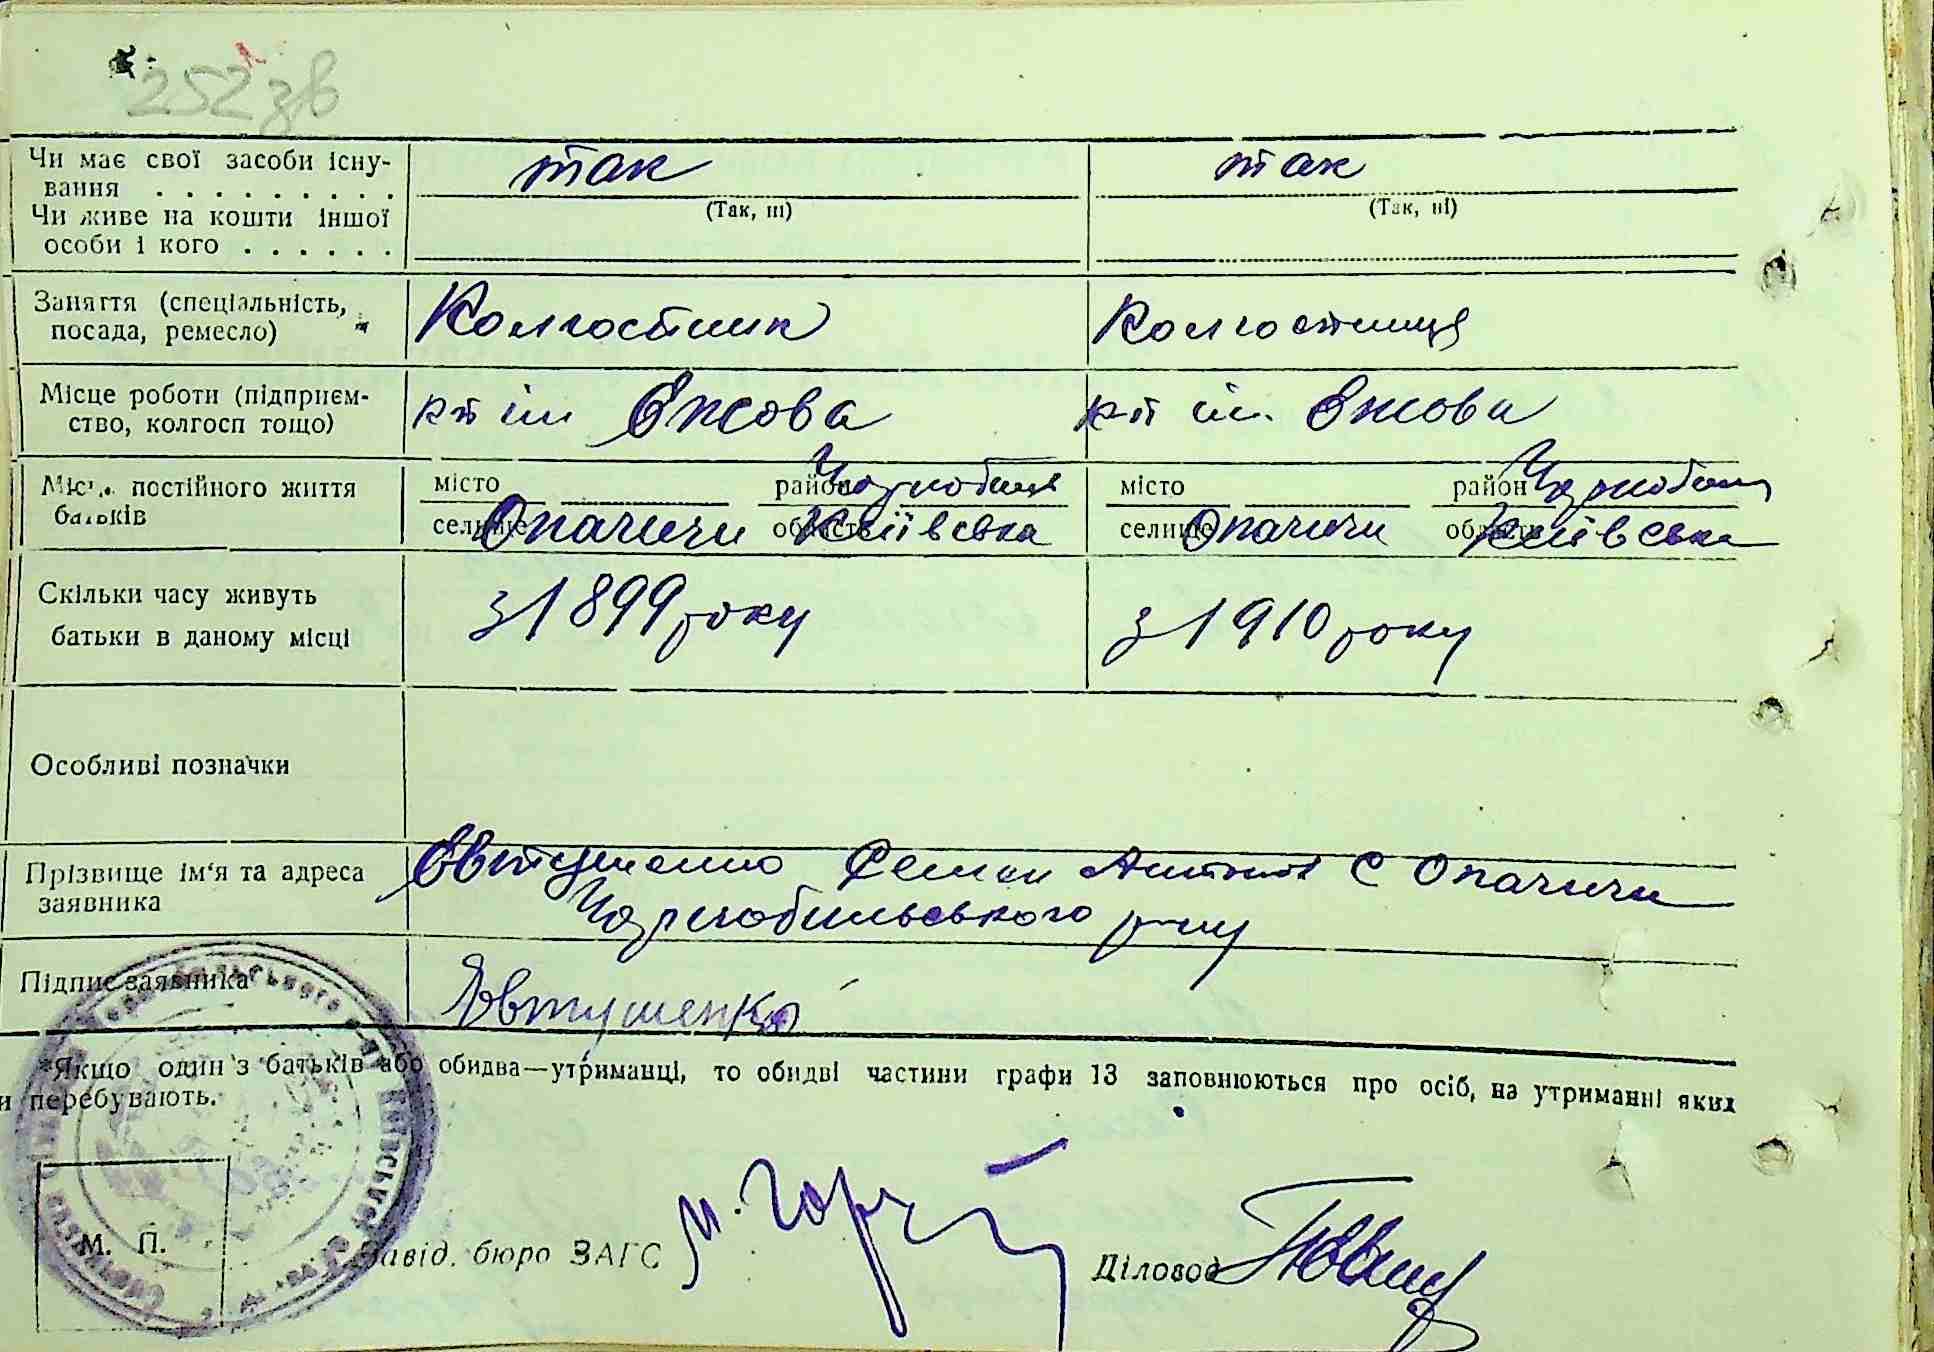 252 зв
Чи має свої засоби існу-
вання . . . . . . . . .
так
так
(Так, ні)
(Так, ні)
Чи живе на кошти іншої
особи і кого . . . . . .
Заняття (спеціальність,
посада, ремесло)
Колгостник
Колгостниця
Місце роботи (підприєм-
ство, колгосп тощо)
кт ім Єжова
кт ім. Єжова
Місце постійного життя
батьків
місто
район Чорнобиль
місто
район Чорнобиль
селище Опачичи область Київська
селище Опачичи область Київська
Скільки часу живуть
батьки в даному місці
з 1899 року
з 1910 року
Особливі позначки
Прізвище ім'я та адреса
заявника
Євтушенко Семен С Опачичи
Чорнобильського р-ну
Підпис заявника
Явтушенко
*Якщо один з батьків або обидва—утриманці, то обидві частини графи 13 заповнюються про осіб, на утриманні яких
и перебувають.
М. П.
Завід. бюро ЗАГС
Діловод